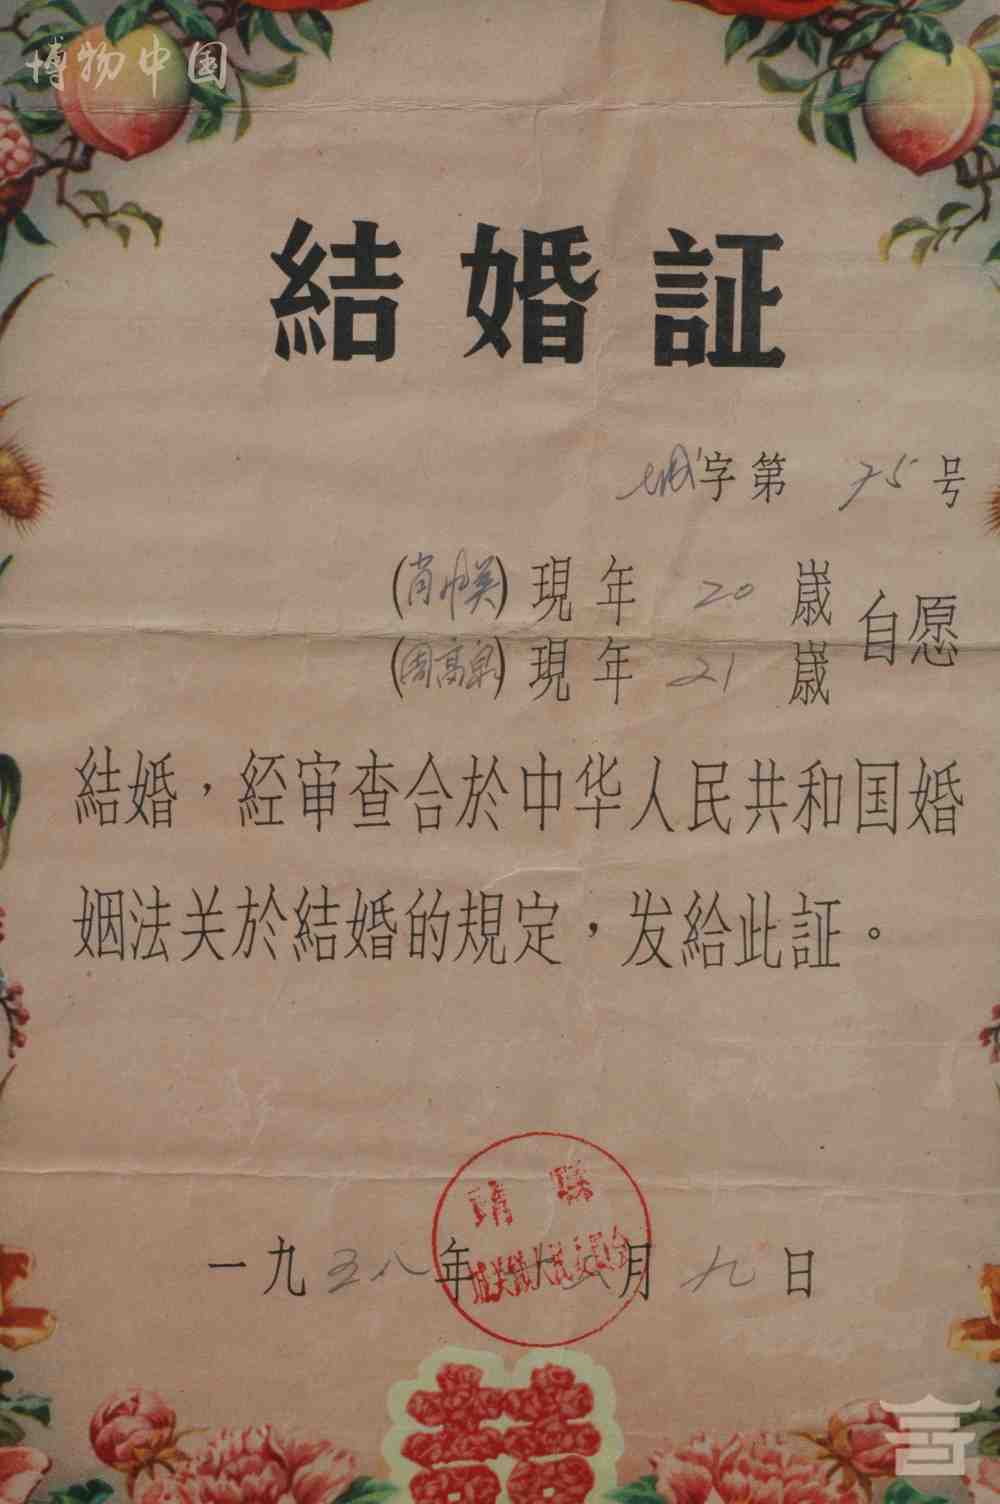 博物中国
結婚証
城字第 75 号
(肖帼英)現年 20 歲
(周高泉)現年 21 歲
自愿
結婚，経审查合於中华人民共和国婚
姻法关於結婚的規定，发給此証。
靖縣
城关鎮人民委員会
一九五八年 月九日
囍